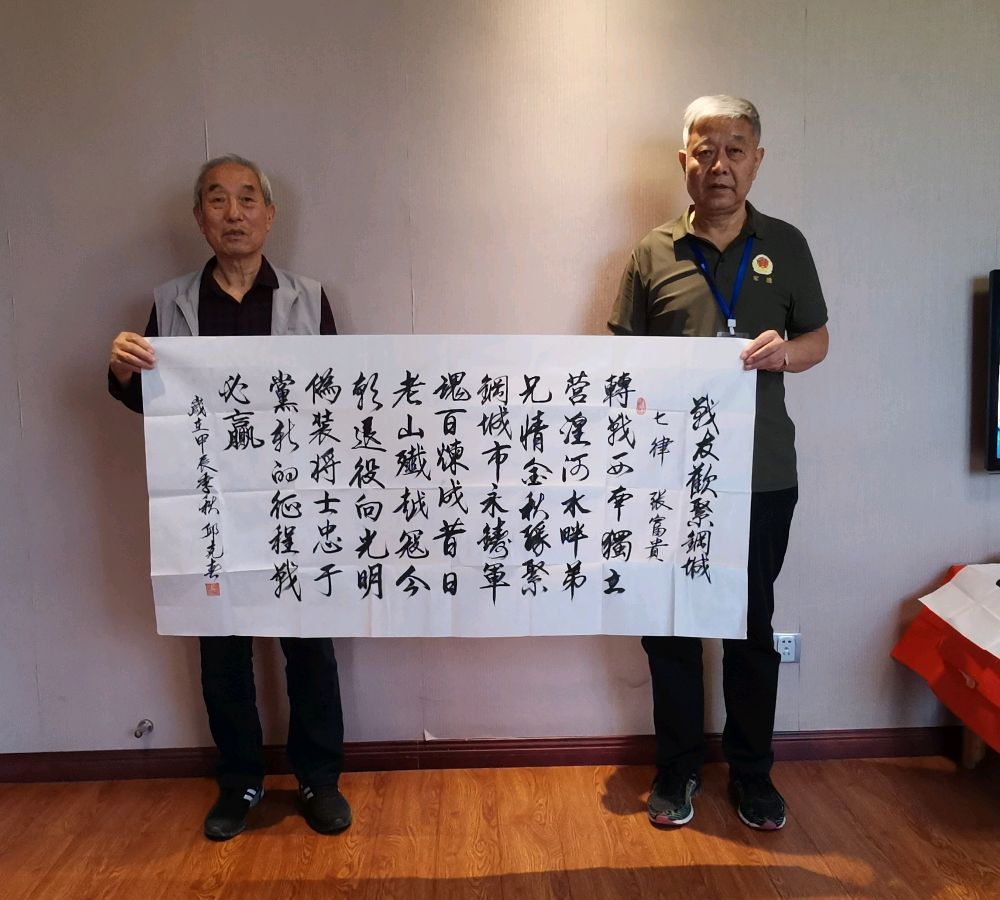 戰友歡聚鋼城
七律 張富貴
轉戰西本獨立
营湟河水畔弟
兄情金秋豫聚
鋼城市永鑄軍
魂百煉成昔日
老山殲越寇今
朝退役向光明
偽装将士忠于
黨新的征程戰
必贏
歲在甲辰季秋邱克